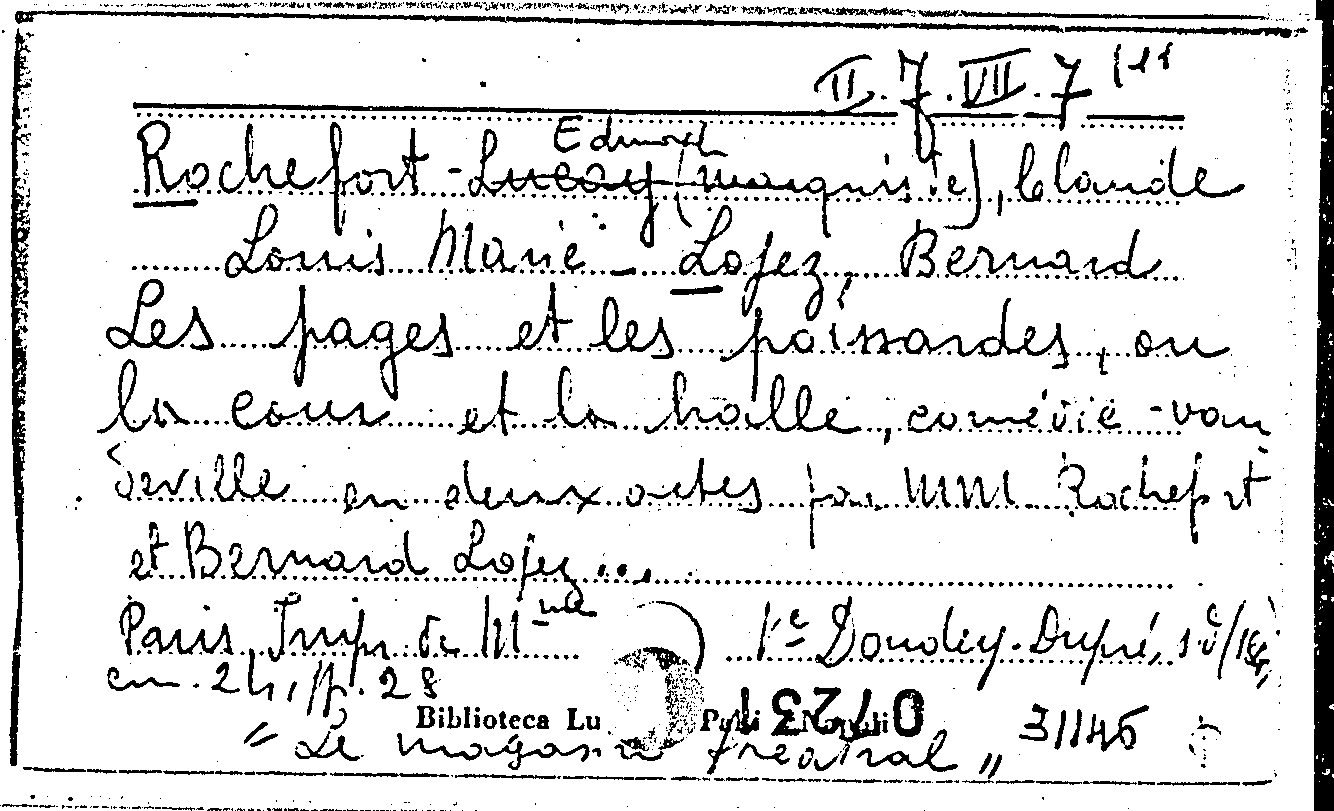 II.7.VII.7
Edmond
Rochefort-Lucay (marquis de), Claude
Louis Marie - Lopez, Bernard
Les pages et les poissardes, ou
la cour et la halle, comédie-vau
deville en deux actes par MM Rochefort
et Bernard Lopez...
Paris, Impr. de Mme Vve Dondey-Dupré,
cm. 24, pp. 28
Biblioteca Lu
31145
"Le magasin théatral"